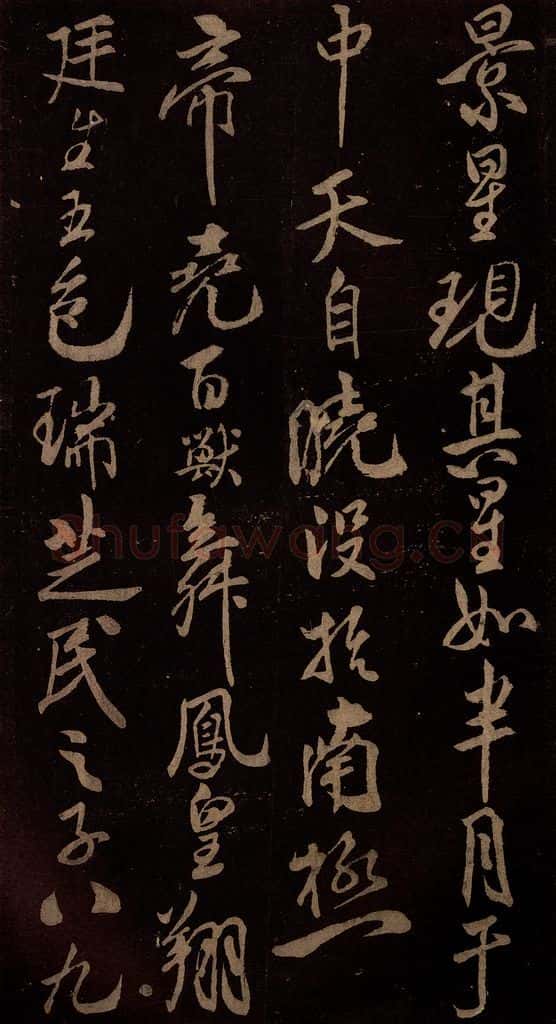 景星現其星如半月于
中天自曉没於南極
帝堯百獸舜鳳皇翔
廷生五色瑞芝民之子八九
Shufawang.cn